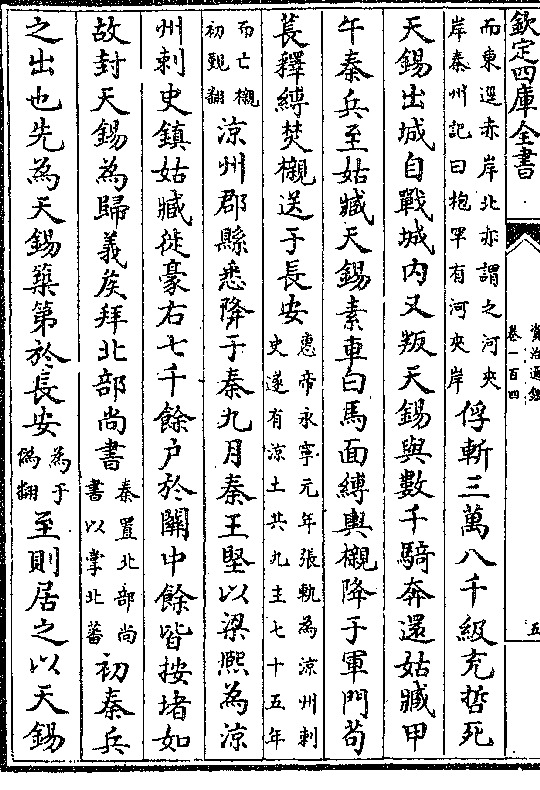 欽定四庫全書
資治通鑑
卷一百四
五
而東逕赤岸北亦謂之河夾
岸秦州記曰枹罕有河夾岸
俘斬三萬八千級充哲死
天錫出城自戰城内又叛天錫與數千騎奔還姑臧甲
午秦兵至姑臧天錫素車白馬面縛輿櫬降于軍門苟
萇釋縛焚櫬送于長安
惠帝永寧元年張軌為涼州刺
史遂有涼土共九主七十五年
而亡櫬
初覲翻
涼州郡縣悉降于秦九月秦王堅以梁熙為涼
州刺史鎮姑臧徙豪右七千餘户於關中餘皆按堵如
故封天錫為歸義侯拜北部尚書
秦置北部尚
書以掌北蕃
初秦兵
之出也先為天錫築第於長安
為于
偽翻
至則居之以天錫